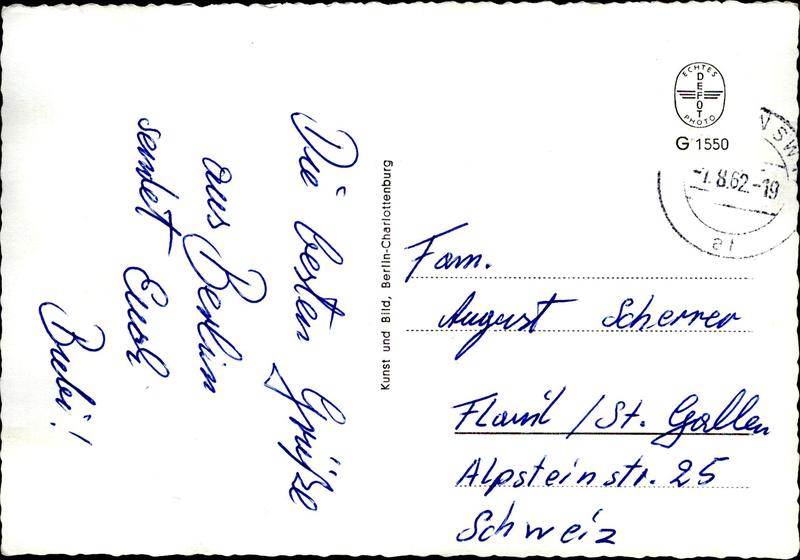 Die besten Grüße
aus Berlin
sendet Euch
Bubi!
Kunst und Bild, Berlin-Charlottenburg
ECHTES
DEFOT
PHOTO
G 1550
-1.8.62.-19
at
Fam.
August Scherrer
Flawil / St. Gallen
Alpsteinstr. 25
Schweiz